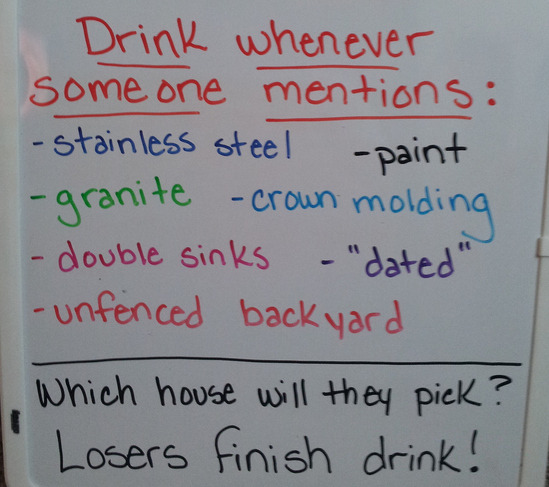 Drink whenever
someone mentions:
- stainless steel - paint
- granite - crown molding
- double sinks - "dated"
- unfenced backyard
Which house will they pick?
Losers finish drink!